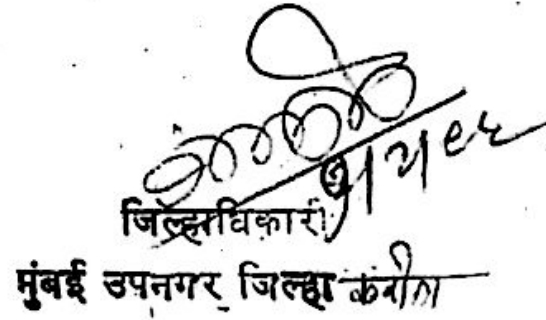 जिल्हाधिकारी
मुंबई उपनगर जिल्हा करीता